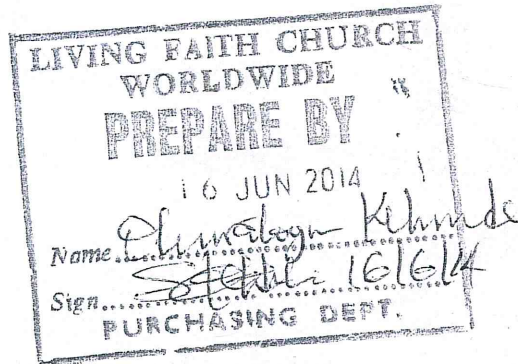 LIVING FAITH CHURCH
WORLDWIDE
PREPARE BY
16 JUN 2014
Name
Sign 16/6/14
PURCHASING DEPT.